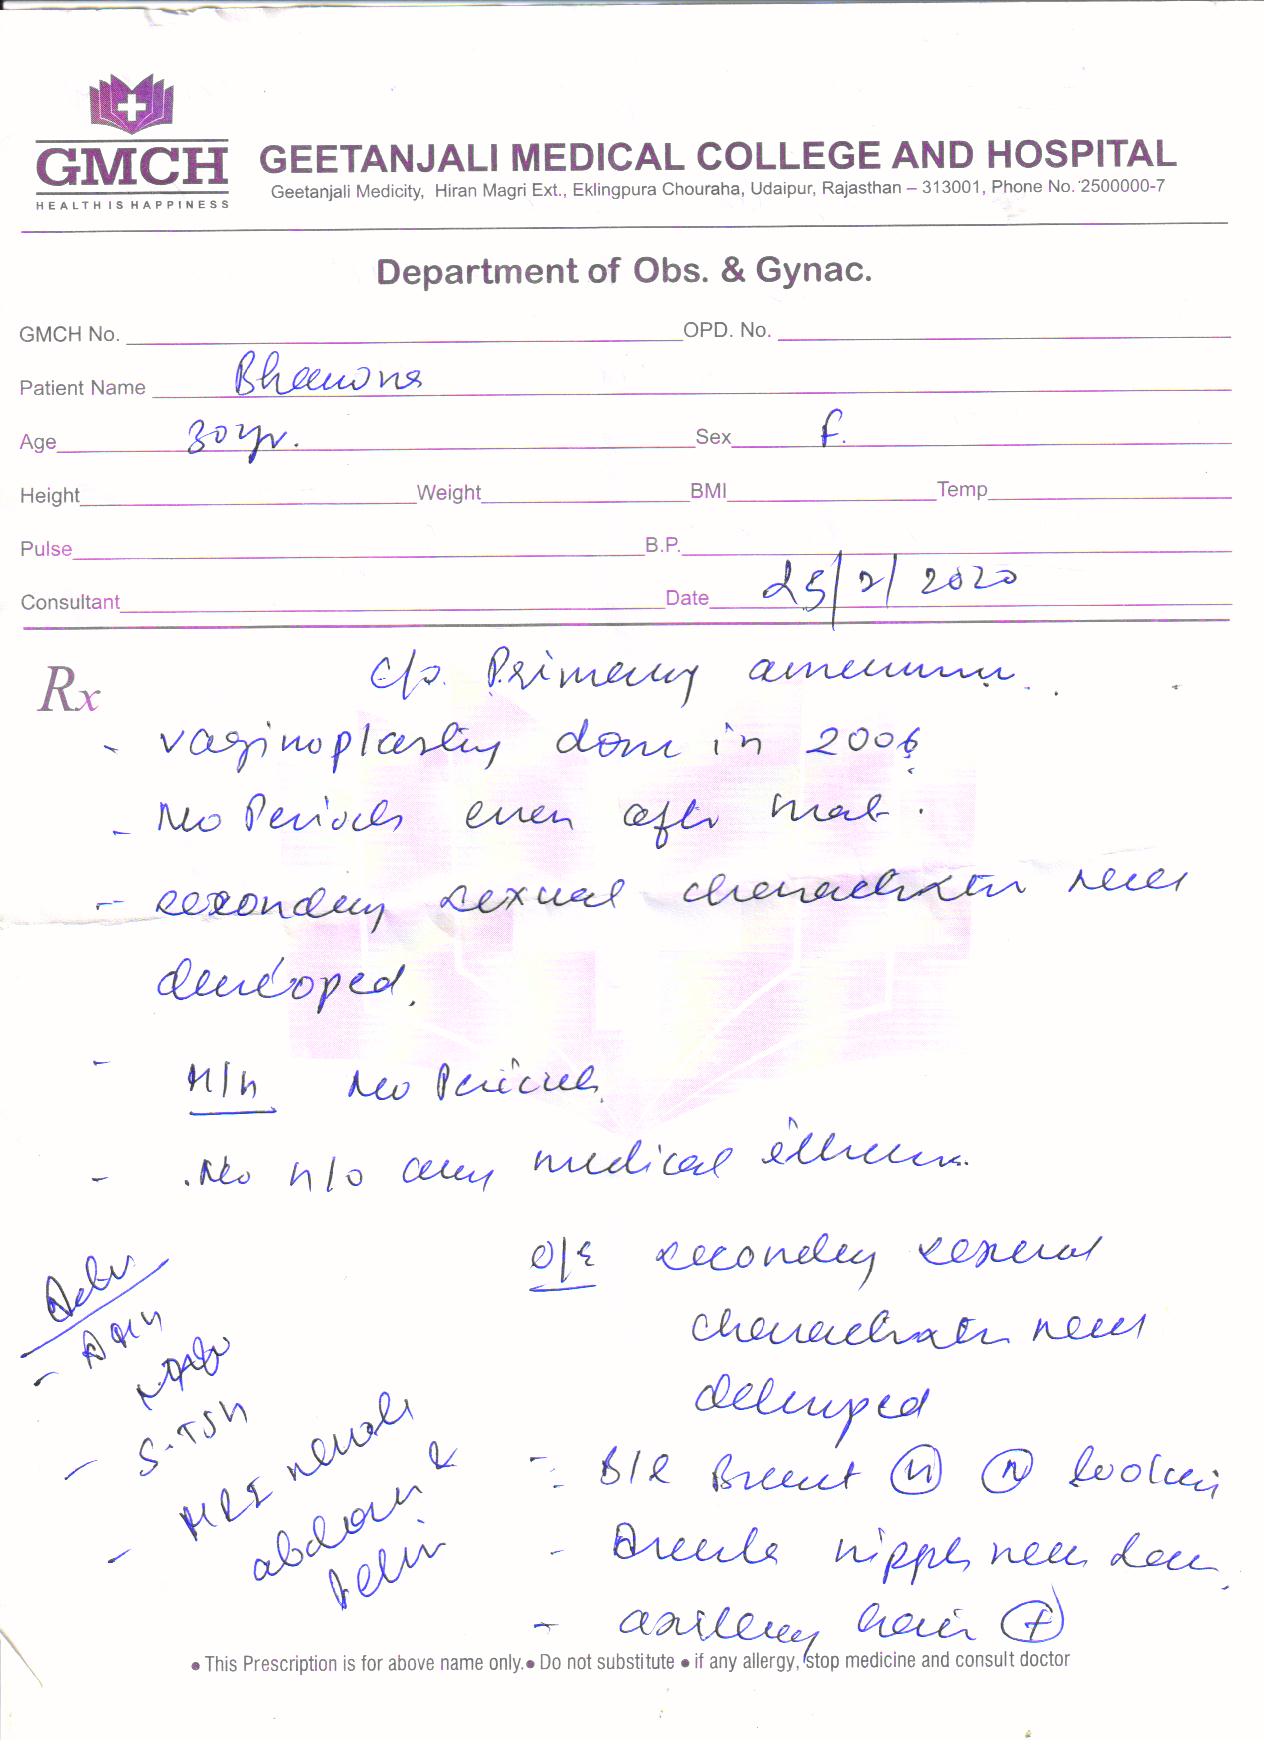 GMCH
HEALTH IS HAPPINESS
GEETANJALI MEDICAL COLLEGE AND HOSPITAL
Geetanjali Medicity, Hiran Magri Ext., Eklingpura Chouraha, Udaipur, Rajasthan – 313001, Phone No. 2500000-7
Department of Obs. & Gynac.
GMCH No. OPD. No.
Patient Name Bhawna
Age 30 yr. Sex F.
Height Weight BMI Temp
Pulse B.P.
Consultant Date 25/2/2020
Rx c/o. Primary
- vaginoplasty done in 2006
- No Periods even after that.
- secondary sexual character well
developed.
- M/H No Periods
- No H/o any medical illness.
O/E secondary sexual
character well
developed
- B/L Breast (N) (N) looking
- Areola nipple well dev
- axillary hair (+)
Adv
- AMH
- S-TSH
- MRI whole
abdomen &
Pelvis
• This Prescription is for above name only. • Do not substitute • if any allergy, stop medicine and consult doctor